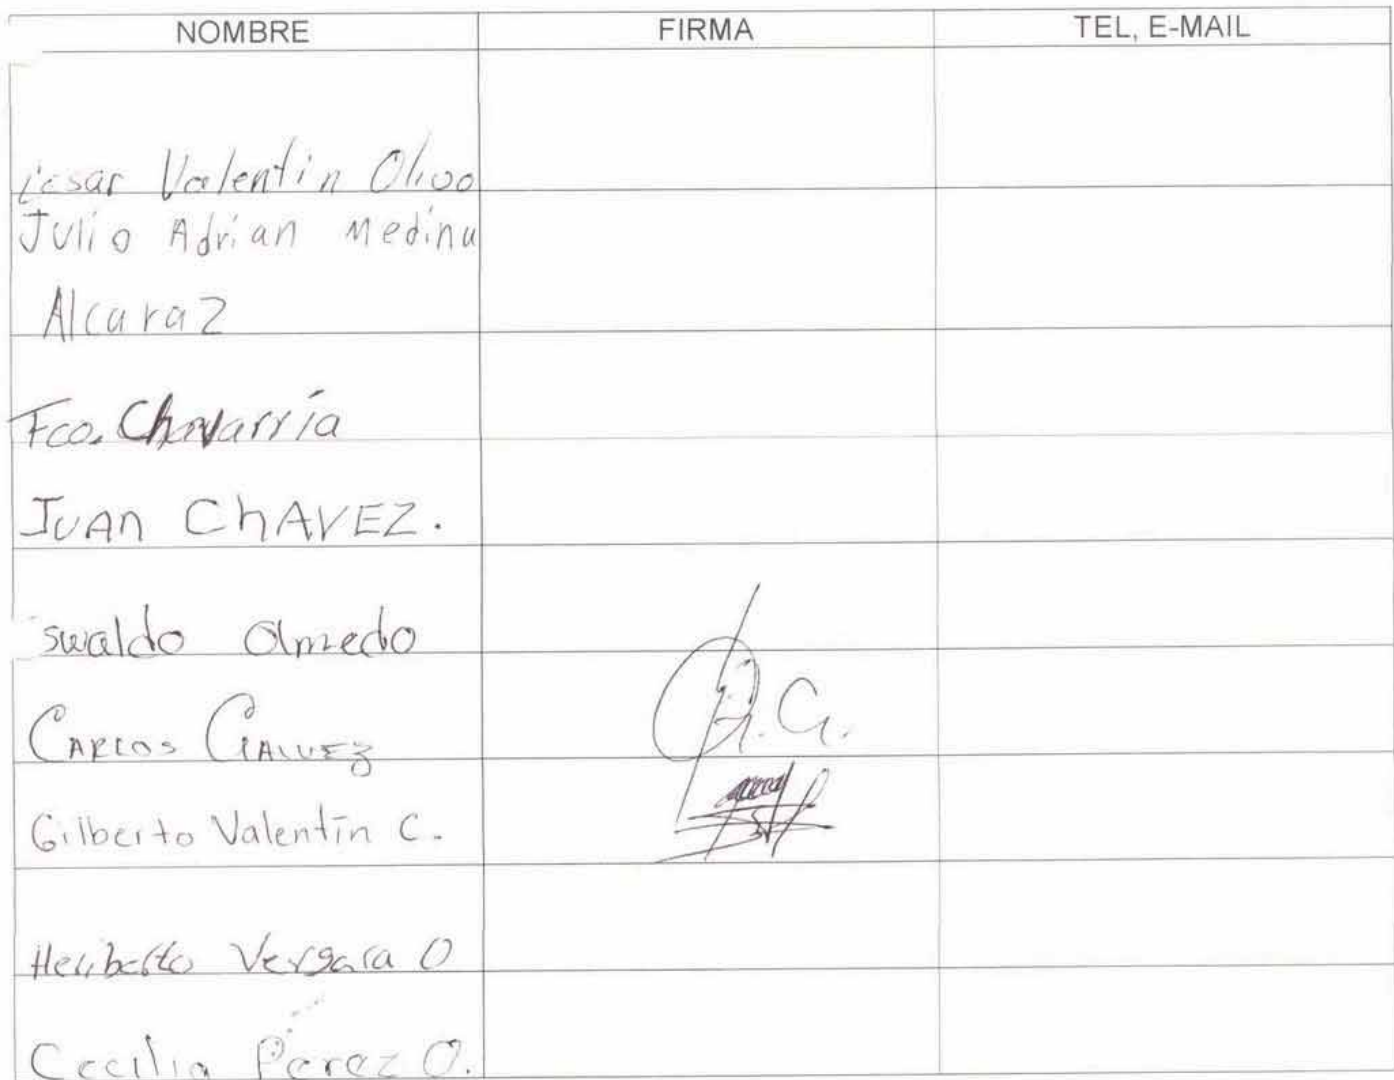 NOMBRE FIRMA TEL, E-MAIL
Cesar Valentin Olivo
Julio Adrian Medina
Alcaraz
Fco. Chavarría
JUAN ChAVEZ.
swaldo Olmedo
CARLOS GALVEZ G.
Gilberto Valentín C.
Heriberto Vergara O
Cecilia Perez O.